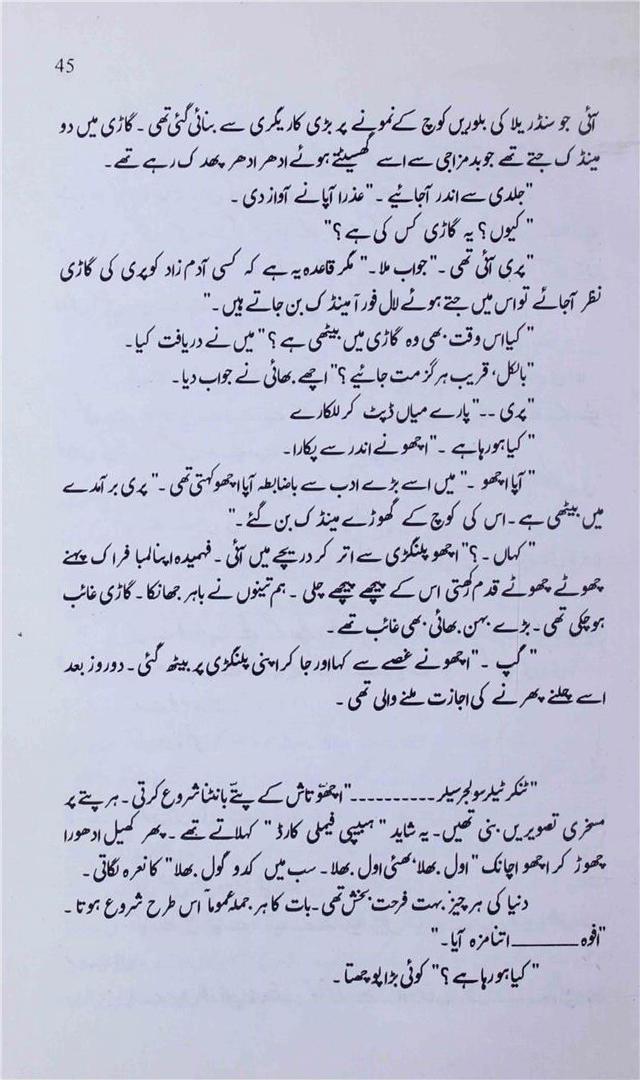 45
آئی جو سنڈریلا کی بلوریں کوچ کے نمونے پر بڑی کاریگری سے بنائی گئی تھی ۔ گاڑی میں دو
مینڈک جتے تھے جو بدمزاجی سے اسے گھسیٹتے ہوئے ادھر ادھر پھدک رہے تھے ۔
"جلدی سے اندر آجائیے ۔" عذرا آپا نے آواز دی ۔
"کیوں؟ یہ گاڑی کس کی ہے؟"
"پری آئی تھی ۔" جواب ملا ۔ "مگر قاعدہ یہ ہے کہ کسی آدم زاد کو پری کی گاڑی
نظر آجائے تو اس میں جتے ہوئے لال فوراً مینڈک بن جاتے ہیں ۔"
"کیا اس وقت بھی وہ گاڑی میں بیٹھی ہے؟" میں نے دریافت کیا ۔
"بالکل، قریب ہرگز مت جائیے؟" اچھے بھائی نے جواب دیا ۔
"پری ۔۔" پارے میاں ڈپٹ کر للکارے
"کیا ہو رہا ہے ۔" اچھو نے اندر سے پکارا ۔
"آپا اچھو ۔" میں اسے بڑے ادب سے باضابطہ آپا اچھو کہتی تھی ۔ "پری برآمدے
میں بیٹھی ہے ۔ اس کی کوچ کے گھوڑے مینڈک بن گئے ۔"
"کہاں ۔؟" اچھو پلنگڑی سے اتر کر دریچے میں آئی ۔ فہمیدہ اپنا لمبا فراک پہنے
چھوٹے چھوٹے قدم رکھتی اس کے پیچھے پیچھے چلی ۔ ہم تینوں نے باہر جھانکا ۔ گاڑی غائب
ہو چکی تھی ۔ بڑے بہن بھائی بھی غائب تھے ۔
"گپ ۔" اچھو نے غصے سے کہا اور جا کر اپنی پلنگڑی پر بیٹھ گئی ۔ دو روز بعد
اسے چلنے پھرنے کی اجازت ملنے والی تھی ۔
"ٹنکر ٹیلر سولجر سیلر ۔۔۔۔۔۔۔۔۔" اچھو تاش کے پتے بانٹنا شروع کرتی ۔ ہر پتے پر
مسخری تصویریں بنی تھیں ۔ یہ شاید "ہیپی فیملی کارڈ" کہلاتے تھے ۔ پھر کھیل ادھورا
چھوڑ کر اچھو اچانک "اول بھلا، بھئی اول بھلا ۔ سب میں کدو گول بھلا" کا نعرہ لگاتی ۔
دنیا کی ہر چیز بہت فرحت بخش تھی ۔ بات کا ہر جملہ عموماً اس طرح شروع ہوتا ۔
"افوہ ______ اتنا مزہ آیا ۔"
"کیا ہو رہا ہے؟" کوئی بڑا پوچھتا ۔